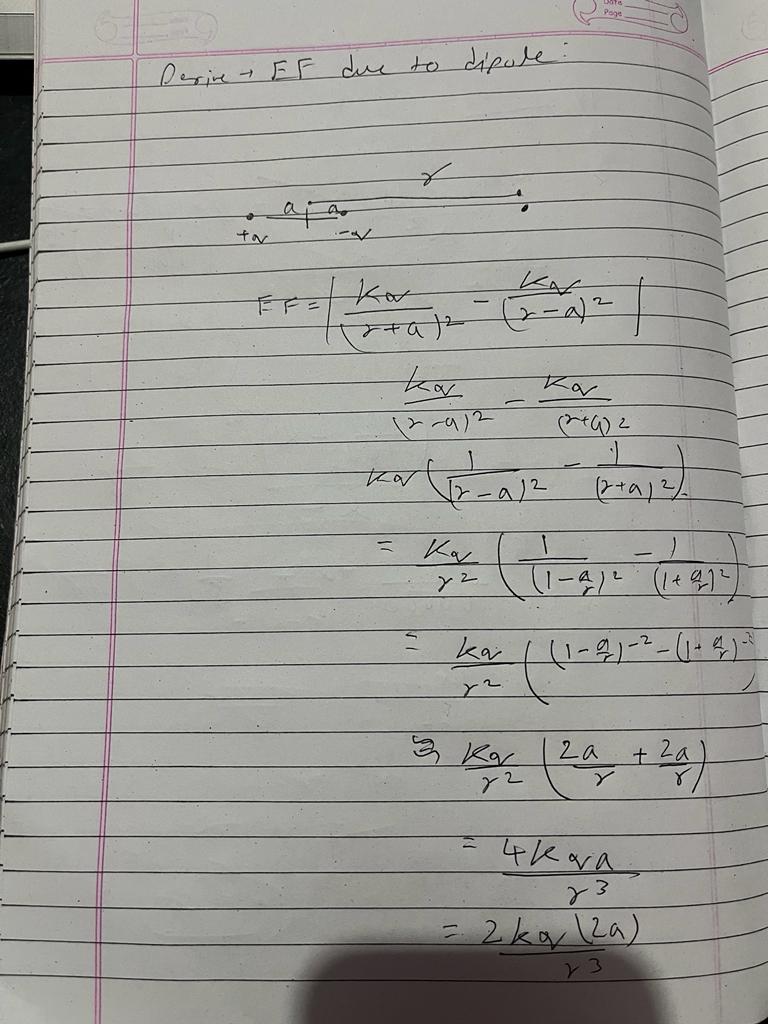 Date
Page
Derive → EF due to dipole:
r
a a
+q -q
EF = | Kq/(r+a)² - Kq/(r-a)² |
kq/(r-a)² - Kq/(r+a)²
kq ( 1/(r-a)² - 1/(r+a)² )
= Kq/r² ( 1/(1-a/r)² - 1/(1+a/r)² )
= kq/r² ( (1-a/r)⁻² - (1+a/r)⁻² )
Kq/r² ( 2a/r + 2a/r )
= 4Kqa/r³
= 2kq(2a)/r³